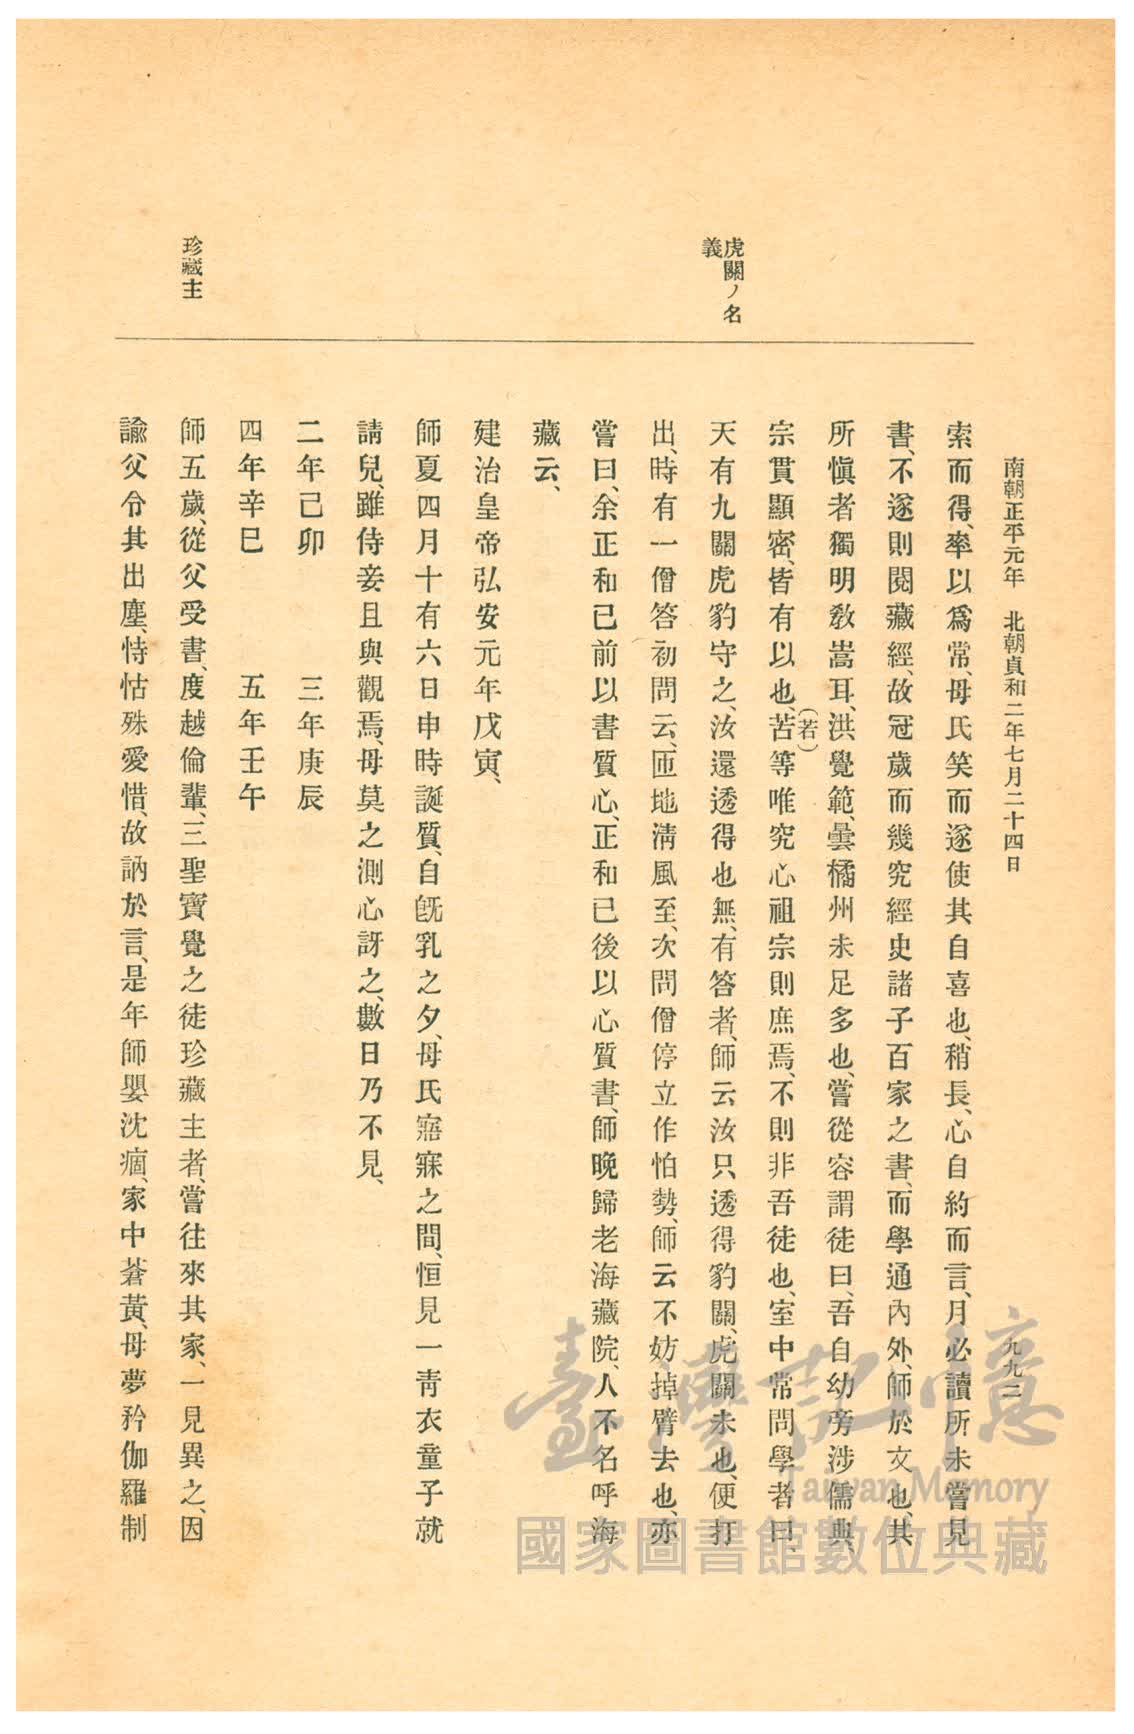 南朝正平元年　北朝貞和二年七月二十四日
九九二
虎關ノ名
義
珍藏主
索而得、率以爲常、母氏笑而遂使其自喜也、稍長、心自約而言、月必讀所未嘗見
書、不遂則閱藏經、故冠歲而幾究經史諸子百家之書、而學通內外、師於文也、其
所愼者獨明敎嵩耳、洪覺範、曇橘州未足多也、嘗從容謂徒曰、吾自幼旁涉儒典、
宗貫顯密、皆有以也、苦(若)等唯究心祖宗則庶焉、不則非吾徒也、室中常問學者曰、
天有九關虎豹守之、汝還透得也無、有答者、師云汝只透得豹關、虎關未也、便打
出、時有一僧答初問云、匝地淸風至、次問僧停立作怕勢、師云不妨掉臂去也、亦
嘗曰、余正和已前以書質心、正和已後以心質書、師晚歸老海藏院、人不名呼海
藏云、
建治皇帝弘安元年戊寅、
師夏四月十有六日申時誕質、自旣乳之夕、母氏寤寐之間、恒見一靑衣童子就
請兒、雖侍妾且與觀焉、母莫之測心訝之、數日乃不見、
二年己卯　三年庚辰
四年辛巳　五年壬午
師五歲、從父受書、度越倫輩、三聖寶覺之徒珍藏主者、嘗往來其家、一見異之、因
諭父令其出塵、恃怙殊愛惜、故訥於言、是年師嬰沈痼、家中蒼黃、母夢矜伽羅制
臺灣記憶
Taiwan Memory
國家圖書館數位典藏